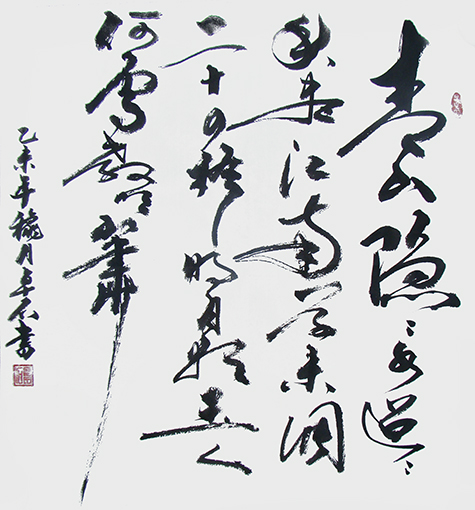 青山隐々水迢々
秋尽江南草未凋
二十四桥明月夜玉人
何处教吹箫
乙未年穐月石书